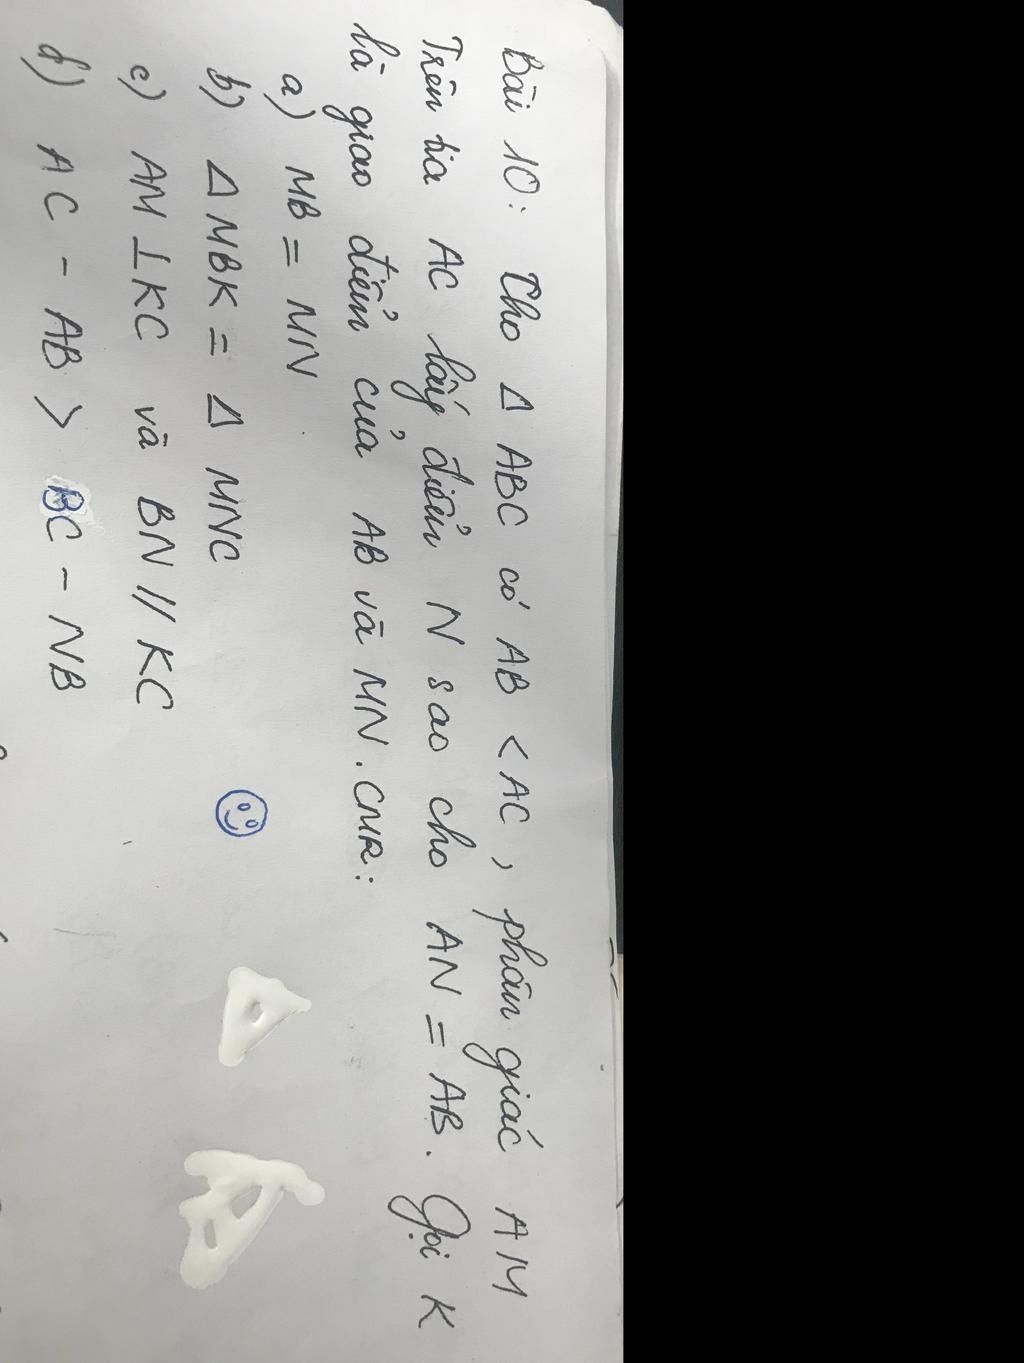 Bài 10: Cho Δ ABC có AB < AC, phân giác AM
Trên tia AC lấy điểm N sao cho AN = AB. Gọi K
là giao điểm của AB và MN. CMR:
a) MB = MN
b) Δ MBK = Δ MNC
c) AM ⊥ KC và BN // KC
d) AC - AB > BC - NB